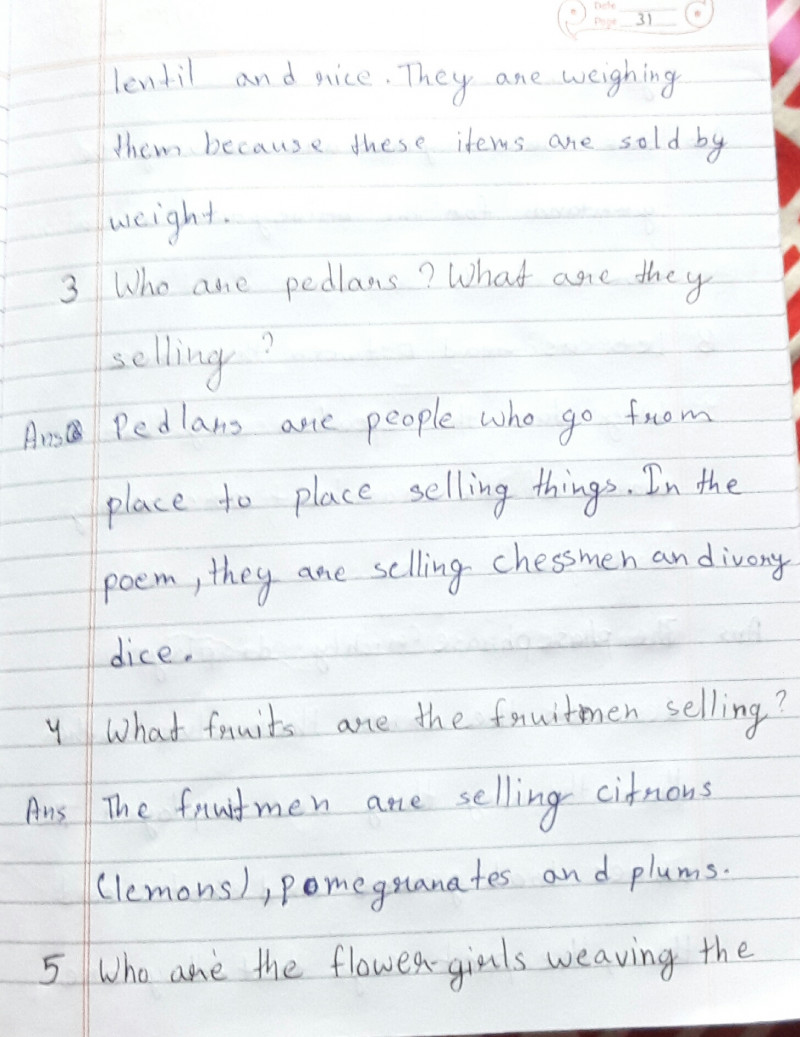 Date
Page 31
lentil and rice. They are weighing
them because these items are sold by
weight.
3 Who are pedlars? What are they
selling?
Ans Pedlars are people who go from
place to place selling things. In the
poem, they are selling chessmen and ivory
dice.
4 What fruits are the fruitmen selling?
Ans The fruitmen are selling citrons
(lemons), pomegranates and plums.
5 Who are the flower-girls weaving the